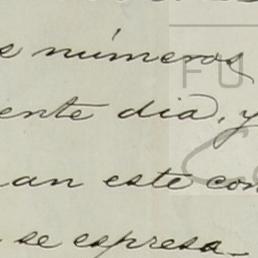 s números
ente dia, y
an este con
se espresa
FU